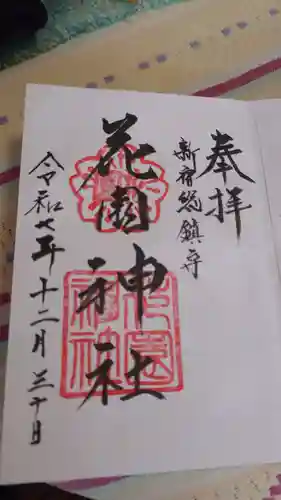 奉拝
新宿総鎮守
花園神社
令和七年十二月三十日